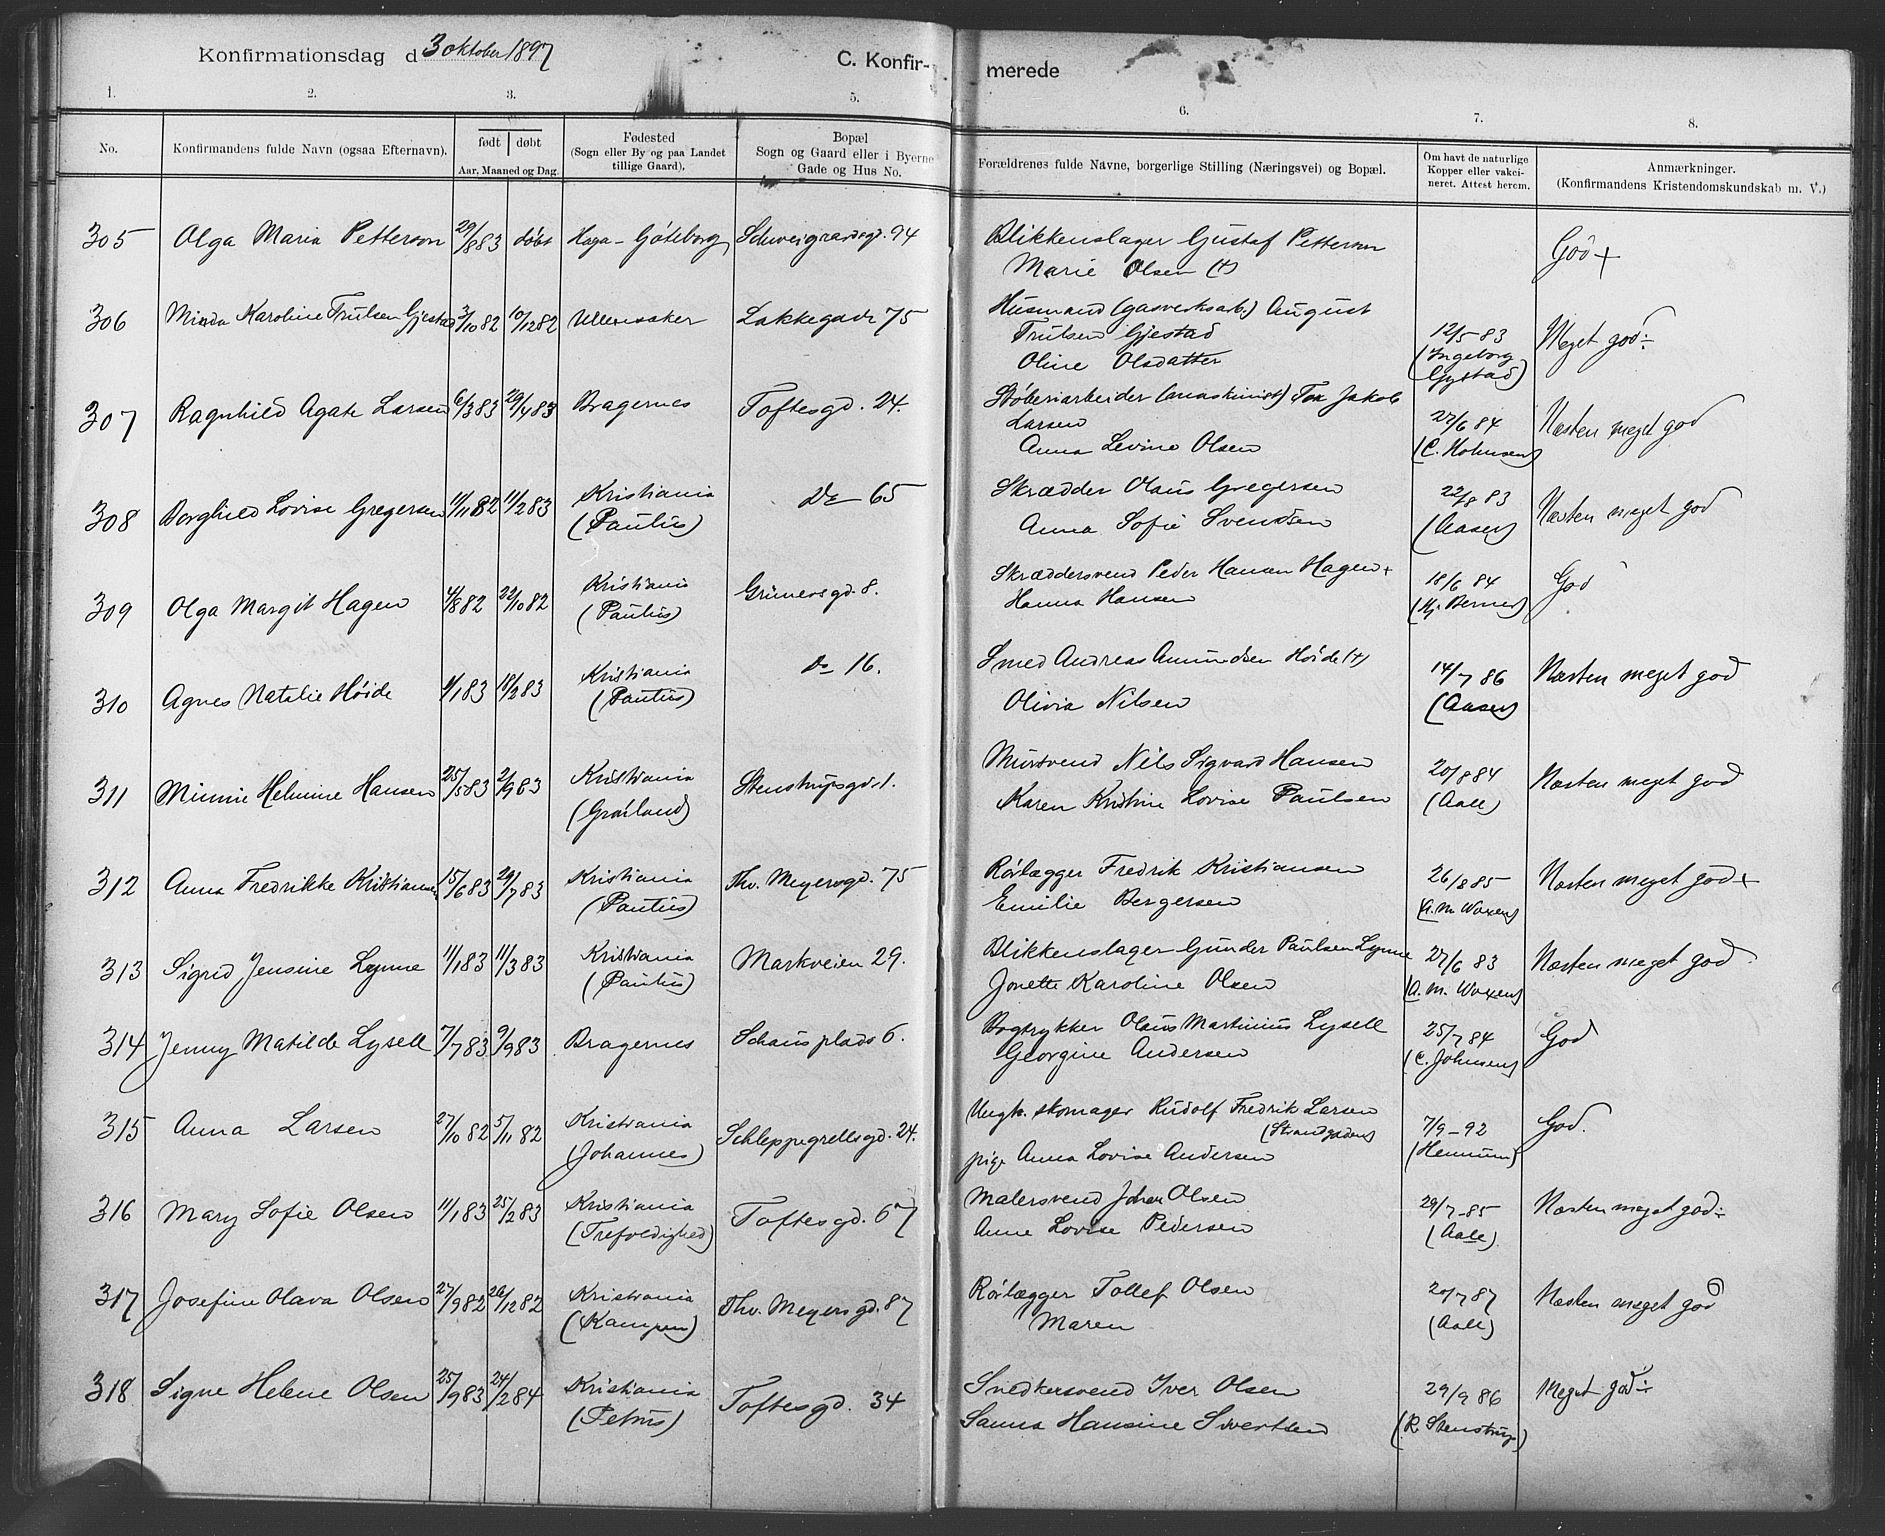 Konfirmationsdag d 3 oktober 1897
C. Konfirmerede
1. 2. 3. 5. 6. 7. 8.
No.
Konfirmandens fulde Navn (ogsaa Efternavn).
født døbt
Aar, Maaned og Dag.
Fødested
(Sogn eller By og paa Landet
tillige Gaard).
Bopæl
Sogn og Gaard eller i Byerne
Gade og Hus No.
Forældrenes fulde Navne, borgerlige Stilling (Næringsvei) og Bopæl.
Om havt de naturlige
Kopper eller vakci-
neret. Attest herom.
Anmærkninger.
(Konfirmandens Kristendomskundskab m. V.)
305 Olga Maria Petterson 29/8 83 døbt Haga - Göteborg Schweigaardsgd. 94
Blikkenslager Gustaf Petterson
Marie Olsen (+)
God +
306 Minda Karoline Trulsen Gjestad 3/10 82 10/12 82 Ullensaker Lakkegade 75
Husmand (gasverksarb.) August
Trulsen Gjestad
Oline Olsdatter
12/5 83
(Ingeborg
Gystad)
Meget god ÷
307 Ragnhild Agate Larsen 6/3 83 29/4 83 Bragernes Toftesgd. 24.
Støberiarbeider (maskinist) Jakob
Larsen
Anna Levine Olsen
27/6 84
(C. Hohnsen)
Næsten meget god
308 Borghild Lovise Gregersen 11/11 82 11/2 83 Kristiania
(Paulus)
Do 65
Skrædder Olaus Gregersen
Anna Sofie Svendsen
22/8 83
(Aasen)
Næsten meget god
309 Olga Margit Hagen 4/8 82 22/10 82 Kristiania
(Paulus)
Grünersgd. 8.
Skræddersvend Peder Hansen Hagen +
Hanna Hansen
18/6 84
(Kj. Berner)
God
310 Agnes Natalie Høide 1/1 83 18/2 83 Kristiania
(Paulus)
Do 16.
Smed Andreas Amundsen Høide (+)
Olivia Nilsen
14/7 86
(Aasen)
Næsten meget god
311 Minnie Helmine Hansen 25/5 83 2/9 83 Kristiania
(Grønland)
Stenstrupsgd. 1.
Mursvend Nils Sigvard Hansen
Karen Kristine Lovise Paulsen
20/8 84
(Aall)
Næsten meget god
312 Anna Fredrikke Kristiansen 15/6 83 29/7 83 Kristiania
(Paulus)
Thv. Meyersgd. 75
Rørlægger Fredrik Kristiansen
Emilie Bergersen
26/8 85
(A. M. Woxen)
Næsten meget god +
313 Sigrid Jensine Lynne 11/1 83 11/3 83 Kristiania
(Paulus)
Markveien 29.
Blikkenslager Gunder Paulsen Lynne
Jonette Karoline Olsen
27/6 83
(A. M. Woxen)
Næsten meget god
314 Jenny Matilde Lysell 7/7 83 9/9 83 Bragernes Schaus plads 6.
Bogtrykker Olaus Martinius Lysell
Georgine Andersen
25/7 84
(C. Johnsen)
God
315 Anna Larsen 27/10 82 5/11 82 Kristiania
(Johannes)
Schleppegrellsgd. 24.
Ungk. skomager Rudolf Fredrik Larsen
(Strandgaden)
pige Anna Lovise Andersen
7/9 - 92
(Hennum)
God.
316 Mary Sofie Olsen 11/1 83 25/2 83 Kristiania
(Trefoldighed)
Toftesgd. 67
Malersvend Johan Olsen
Anne Lovise Pedersen
29/7 - 85
(Aall)
Næsten meget god ÷
317 Josefine Olava Olsen 27/9 82 26/12 82 Kristiania
(Kampen)
Thv. Meyersgd. 87
Rørlægger Tollef Olsen
Maren
20/7 87
(Aall)
Næsten meget god
318 Signe Helene Olsen 25/9 83 24/2 84 Kristiania
(Petrus)
Toftesgd. 34
Snedkersvend Iver Olsen
Sanna Hansine Sivertsen
29/9 86
(R. Stenstrup)
Meget god ÷